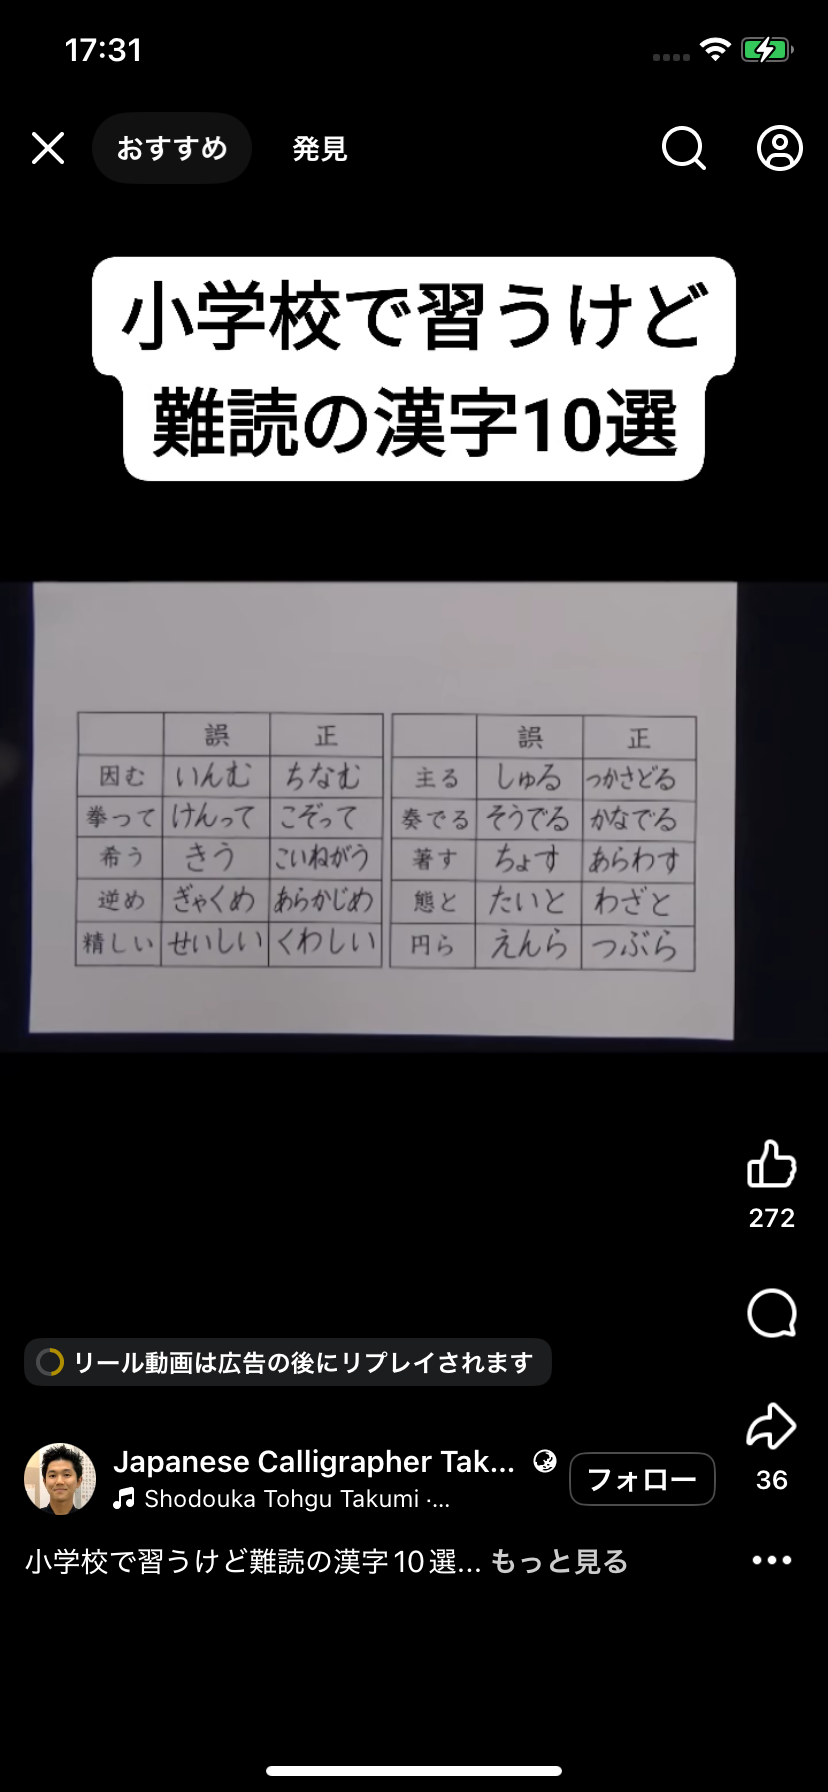 17:31
おすすめ 発見
小学校で習うけど
難読の漢字10選
誤 正
因む いんむ ちなむ
挙って けんって こぞって
希う きう こいねがう
逆め ぎゃくめ あらかじめ
精しい せいしい くわしい
誤 正
主る しゅる つかさどる
奏でる そうでる かなでる
著す ちょす あらわす
態と たいと わざと
円ら えんら つぶら
272
リール動画は広告の後にリプレイされます
Japanese Calligrapher Tak...
フォロー
Shodouka Tohgu Takumi ·...
36
小学校で習うけど難読の漢字10選... もっと見る